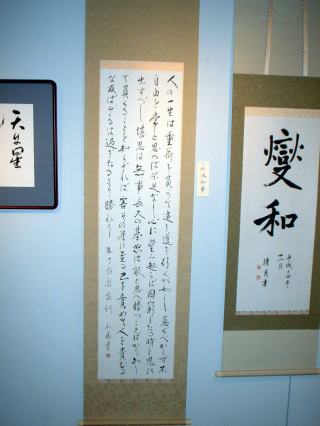 燮和
平成十四年
人の一生は重荷を負うて遠き道を行くが如し急ぐべからず不
自由を常と思へば不足なし心に望み起らば困窮したる時を思ひ
出すべし堪忍は無事長久の基怒は敵と思へ勝つことばかり知り
て負くることを知らざれば害その身に至る己を責めて人を責むる
な及ばざるは過ぎたるより勝れり 家康家訓